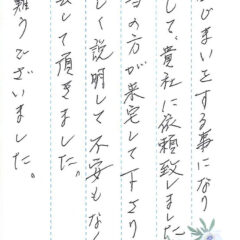 じまいをする事になり
して、貴社に依頼致しました
の方が来宅して下さり
しく説明して不安もなく
して頂きました。
難うございました。